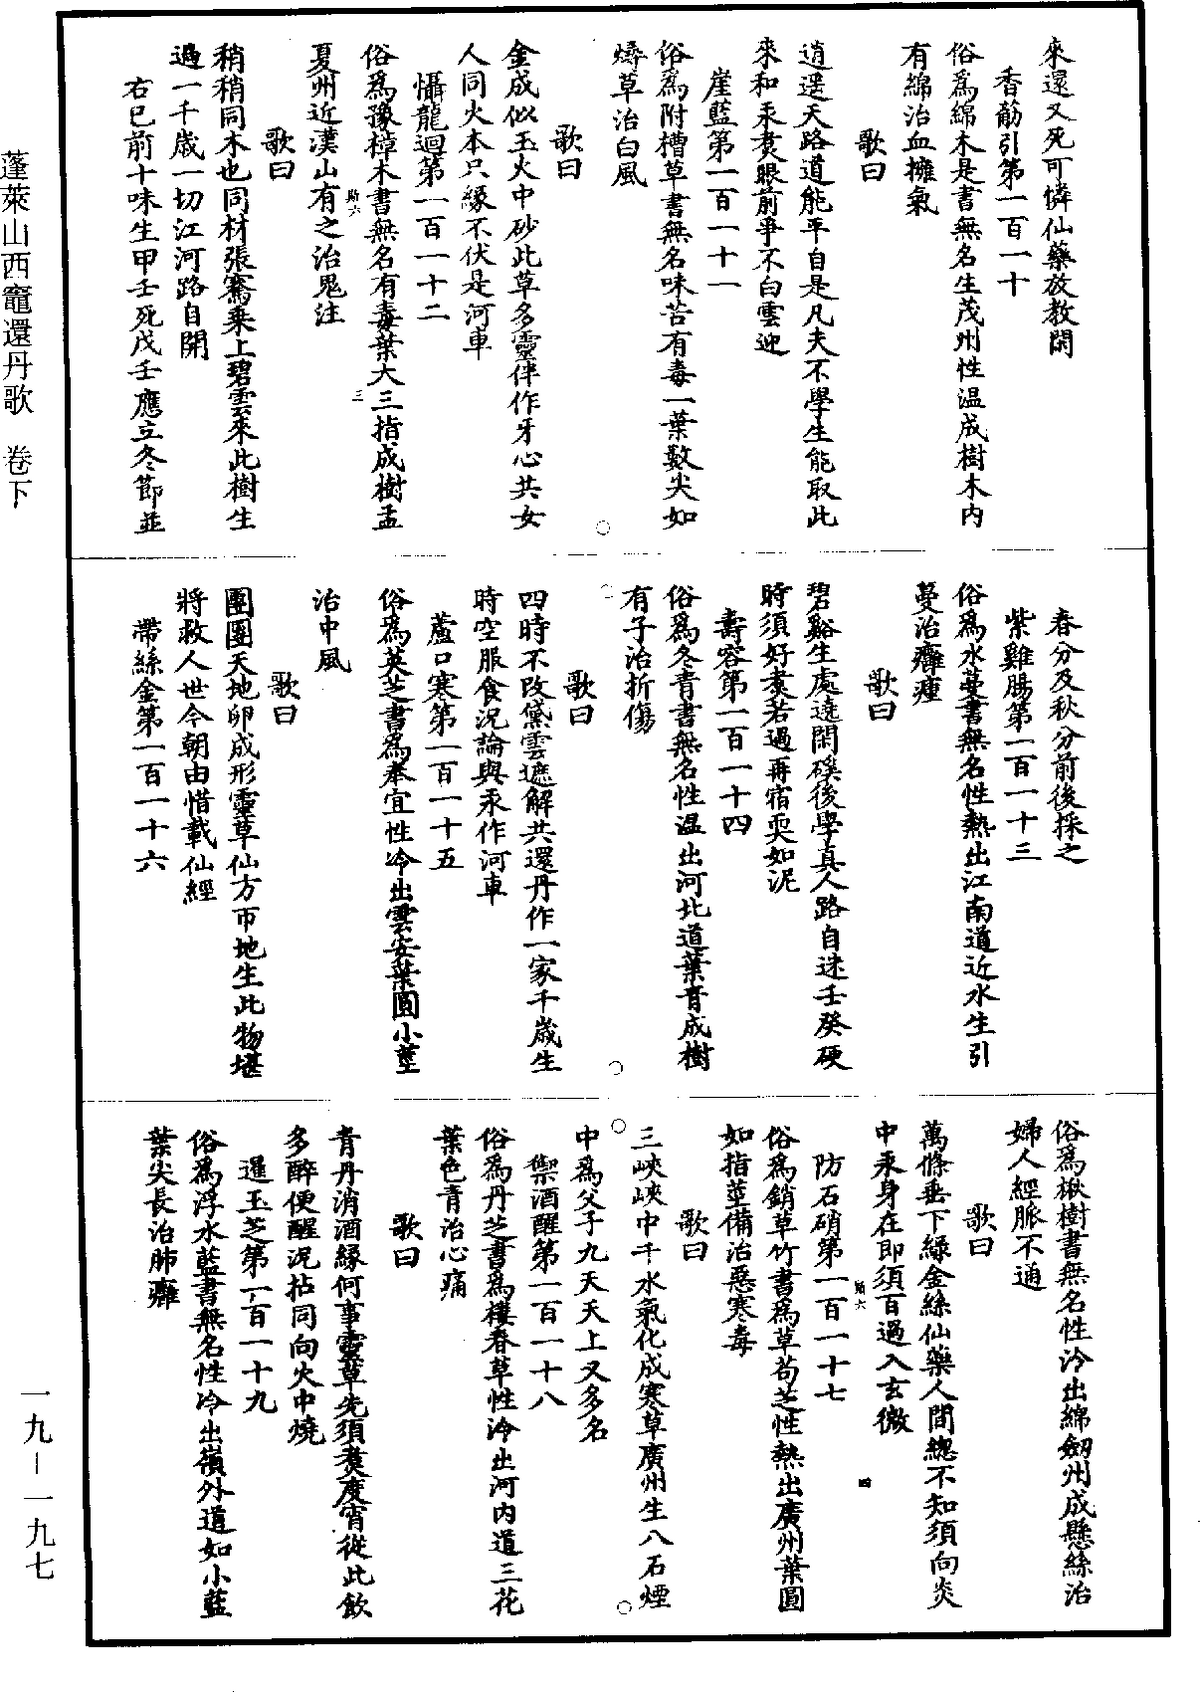 來還又死可憐仙藥放教閑
香筋引第一百一十
俗爲綿木是書無名生茂州性温成樹木内
有綿治血擁氣
歌曰
逍遥天路道能平自是凡夫不學生能取此
來和汞煑眼前爭不白雲迎
崖藍第一百一十一
俗爲附槽草書無名味苦有毒一葉數尖如
燖草治白風
歌曰
金成似玉火中砂此草多靈伴作牙心共女
人同火本只緣不伏是河車
懾龍迴第一百一十二
俗爲豫樟木書無名有毒葉大三指成樹孟
夏州近漢山有之治鬼注
歌曰
稍稍同木也同材張騫乗上碧雲來此樹生
過一千歲一切江河路自開
右已前十味生甲壬死戊壬應立冬節並
春分及秋分前後採之
紫雞腸第一百一十三
俗爲水蔓書無名性熱出江南道近水生引
蔓治癰瘇
歌曰
碧谿生處遶閑磎後學真人路自迷壬癸硬
時須好煑若過再宿耎如泥
壽容第一百一十四
俗爲冬青書無名性温出河北道葉青成樹
有子治折傷
歌曰
四時不改黛雲遮解共還丹作一家千歲生
時空服食況論與汞作河車
蘆口寒第一百一十五
俗爲英芝書爲牽宜性冷出雲安葉圓小莖
治中風
歌曰
團團天地卵成形靈草仙方帀地生此物堪
將救人世今朝由惜載仙經
帶絲金第一百一十六
俗爲楸樹書無名性冷出綿劒州成懸絲治
婦人經脈不通
歌曰
萬條垂下緑金絲仙藥人間總不知須向炎
中汞身在即須百過入玄微
防石硝第一百一十七
俗爲銷草竹書爲草苟芝性熱出廣州葉圓
如指莖備治惡寒毒
歌曰
三峽峽中千水氣化成寒草廣州生八石煙
中爲父子九天天上又多名
禦酒醒第一百一十八
俗爲丹芝書爲樓春草性冷出河内道三花
葉色青治心痛
歌曰
青丹消酒緣何事靈草先須煑度宵從此飲
多醉便醒泥拈同向火中燒
暹玉芝第一百一十九
俗爲浮水藍書無名性冷出嶺外道如小藍
葉尖長治肺癰
蓬萊山西竈還丹歌 卷下
一九—一九七